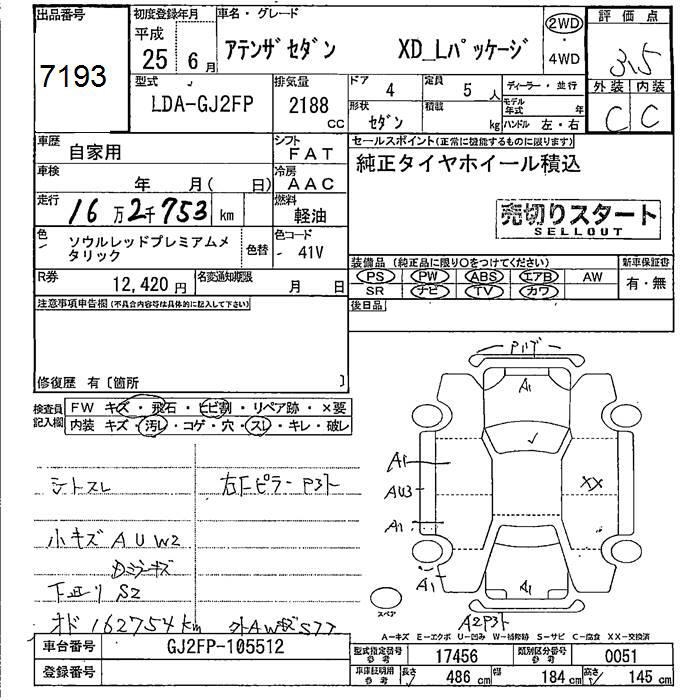 出品番号
7193
初度登録年月
平成
25年 6月
車名・グレード
アテンザセダン XD_Lパッケージ
2WD
・
4WD
評価点
3.5
外装 内装
C C
型式
LDA-GJ2FP
排気量
2188
CC
ドア 4
定員 5 人
ディーラー・並行
形状
セダン
積載
kg
モデル
年式 年
ハンドル 左・右
車歴
自家用
シフト
FAT
車検
年 月( 日)
冷房
AAC
走行
16万2千753km
燃料
軽油
色
ソウルレッドプレミアムメ
タリック
色替
色コード
41V
R券
12,420円
名変通知期限
月 日
セールスポイント(正常に機能するものに限ります)
純正タイヤホイール積込
売切りスタート
SELLOUT
装備品(純正品に限り○をつけてください)
PS PW ABS エアB AW
SR ナビ TV カワ
新車保証書
有・無
後日品
注意事項申告欄(不具合内容等は具体的に記入して下さい)
修復歴 有〔箇所 〕
検査員
記入欄
FW キズ・飛石・ヒビ割・リペア跡・×要
内装 キズ・汚レ・コゲ・穴・スレ・キレ・破レ
シートスレ
小キズ A U W2
ドアミラーキズ
下廻り S2
オド 162754km
外AWキズ
A1
A1
AU3
A1
A1
A1
XX
スペア
A-キズ E-エクボ U-凹み W-補修跡 S-サビ C-腐食 XX-交換済
車台番号
GJ2FP-105512
登録番号
型式指定番号
参考
17456
類別区分番号
参考
0051
車庫証明用
参考
長さ 486 cm
幅 184 cm
高さ 145 cm